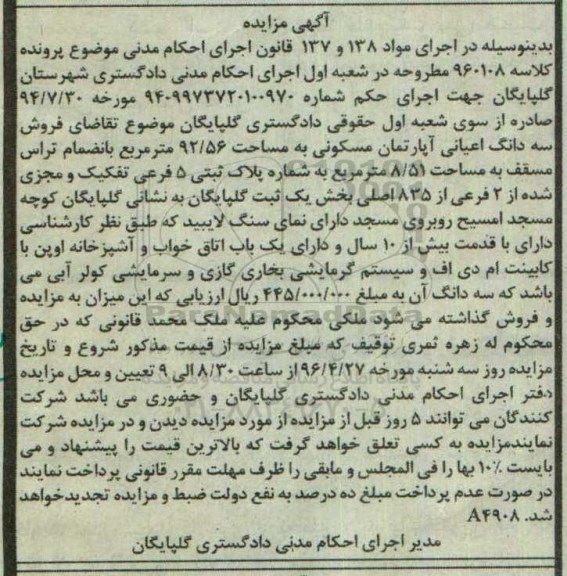 آگهی مزایده
بدینوسیله در اجرای مواد ۱۳۸ و ۱۳۷ قانون اجرای احکام مدنی موضوع پرونده
کلاسه ۹۶۰۱۰۸ مطروحه در شعبه اول اجرای احکام مدنی دادگستری شهرستان
گلپایگان جهت اجرای حکم شماره ۹۴۰۹۹۷۳۷۲۰۱۰۰۹۷۰ مورخه ۹۴/۷/۳۰
صادره از سوی شعبه اول حقوقی دادگستری گلپایگان موضوع تقاضای فروش
سه دانگ اعیانی آپارتمان مسکونی به مساحت ۹۲/۵۶ مترمربع بانضمام تراس
مسقف به مساحت ۸/۵۱ مترمربع به شماره پلاک ثبتی ۵ فرعی تفکیک و مجزی
شده از ۲ فرعی از ۸۳۵ اصلی بخش یک ثبت گلپایگان به نشانی گلپایگان کوچه
مسجد امسیح روبروی مسجد دارای نمای سنگ لایبید که طبق نظر کارشناسی
دارای با قدمت بیش از ۱۰ سال و دارای یک باب اتاق خواب و آشپزخانه اوپن با
کابینت ام دی اف و سیستم گرمایشی بخاری گازی و سرمایشی کولر آبی می
باشد که سه دانگ آن به مبلغ ۴۴۵/۰۰۰/۰۰۰ ریال ارزیابی که این میزان به مزایده
و فروش گذاشته می شود ملکی محکوم علیه ملک محمد قانونی که در حق
محکوم له زهره ثمری توقیف که مبلغ مزایده از قیمت مذکور شروع و تاریخ
مزایده روز سه شنبه مورخه ۹۶/۴/۲۷ از ساعت ۸/۳۰ الی ۹ تعیین و محل مزایده
دفتر اجرای احکام مدنی دادگستری گلپایگان و حضوری می باشد شرکت
کنندگان می توانند ۵ روز قبل از مزایده از مورد مزایده دیدن و در مزایده شرکت
نمایندمزایده به کسی تعلق خواهد گرفت که بالاترین قیمت را پیشنهاد و می
بایست ۱۰٪ بها را فی المجلس و مابقی را ظرف مهلت مقرر قانونی پرداخت نمایند
در صورت عدم پرداخت مبلغ ده درصد به نفع دولت ضبط و مزایده تجدیدخواهد
شد. A۴۹۰۸
مدیر اجرای احکام مدنی دادگستری گلپایگان